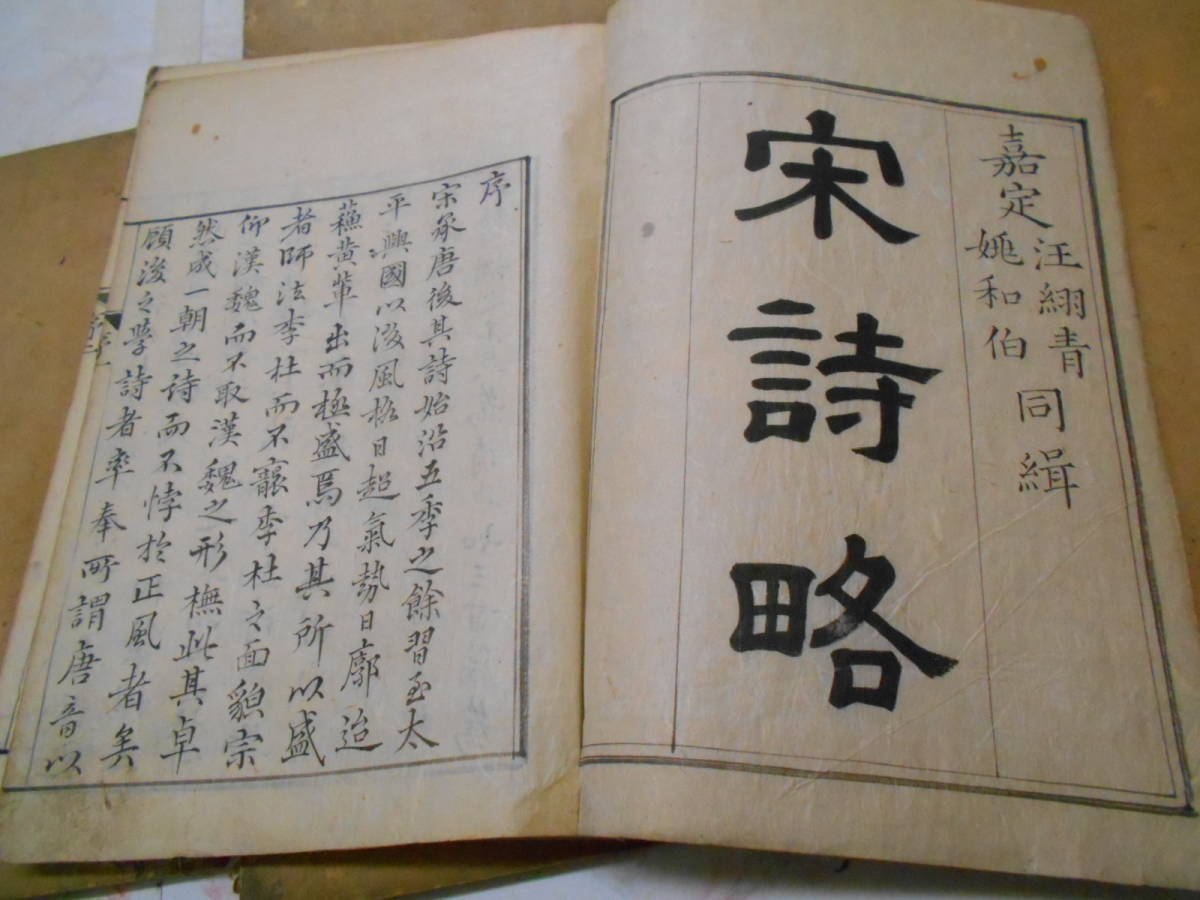 嘉定
汪䌹青
姚和伯
同緝
宋詩略
序
宋承唐後其詩始沿五季之餘習至太
平興國以後風格日超氣勢日廓迨
蘇黄輩出而極盛焉乃其所以盛
者師法李杜而不襲李杜之面貌宗
仰漢魏而不取漢魏之形橅此其卓
然成一朝之诗而不悖於正風者矣
顧後之學詩者率奉所謂唐音以